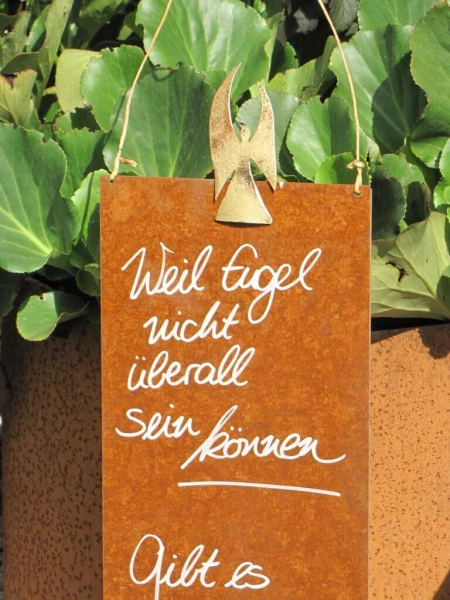 Weil Engel
nicht
überall
sein können
Gibt es